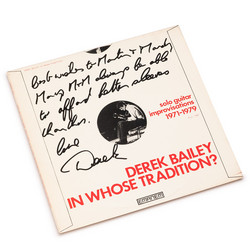 best wishes to Martin & Mandy
Many will always be able
to afford better sleeves
thanks.
love
Derek
solo guitar
improvisations
1971-1979
DEREK BAILEY
IN WHOSE TRADITION?
emanem